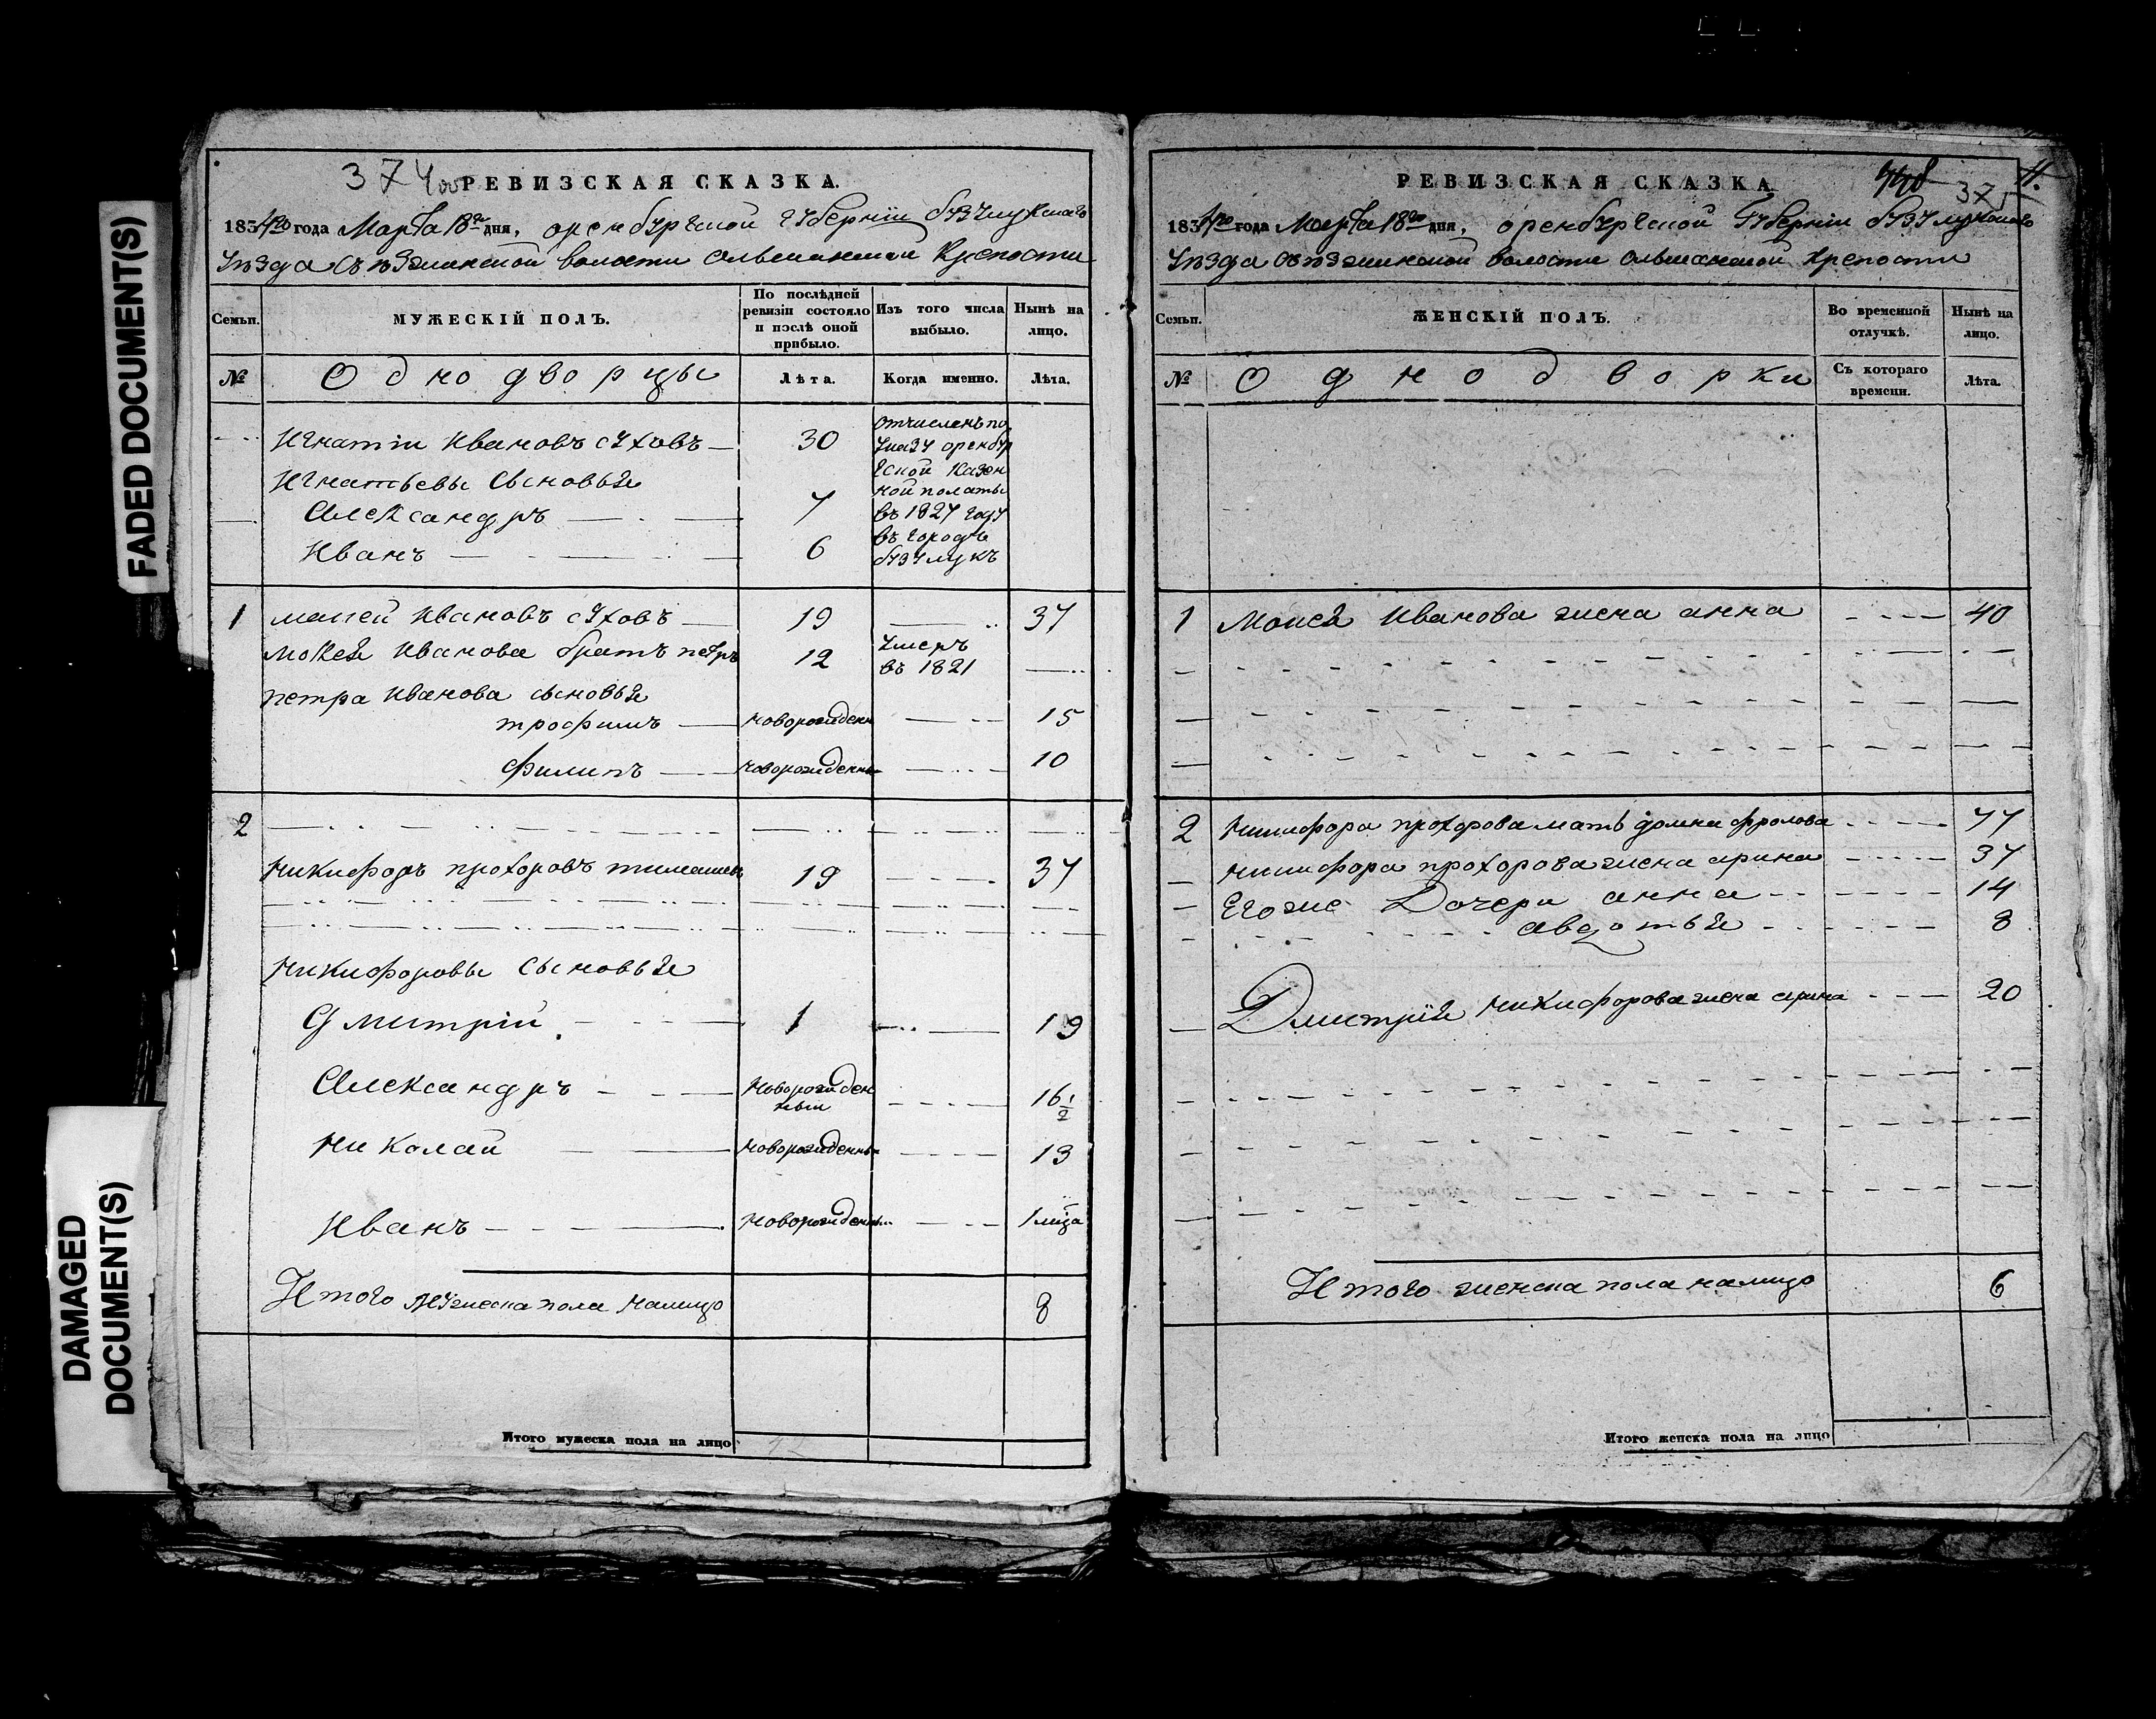 FADED DOCUMENT(S)
DAMAGED
DOCUMENT(S)
374
РЕВИЗСКАЯ СКАЗКА.
1834го года Марта 18го дня, оренбургской губернiи бузулукскаго
уѣзда Съѣзжинской волости Ольшанской крепости
Семьи.
МУЖЕСКІЙ ПОЛЪ.
По послѣдней
ревизіи состояло
и послѣ оной
прибыло.
Изъ того числа
выбыло.
Нынѣ на
лицо.
№
Однодворцы
Лѣта.
Когда именно.
Лѣта.
Игнатiи Ивановъ суховъ
30
отчисленъ по
указу оренбур
гской казен
ной полаты
въ 1827 году
въ городъ
бузулукъ
Игнатьевы Сыновья
Александръ 7
Иванъ 6
1 Ивановъ суховъ 19 37
Иванова братъ петръ 12 умеръ
въ 1821
петра Иванова сыновья
трофимъ новорожден 15
филипъ новорожденны 10
2
Никифоръ прохоровъ 19 37
Никифоровы Сыновья
Дмитрiй 1 19
Александръ Новорожден
ныи 16 1/2
Николаи новорожденны 13
Иванъ новорожденны
Итого мужеска пола налицо 8
Итого мужеска пола на лицо
РЕВИЗСКАЯ СКАЗКА.
375
11.
1834го года Марта 18го дня, оренбургской Губернiи бузулукскаго
уѣзда Съѣзжинской волости Ольшанской крепости
Семьи.
ЖЕНСКІЙ ПОЛЪ.
Во временной
отлучкѣ.
Нынѣ на
лицо.
№
Однодворки
Съ котораго
времени.
Лѣта.
1 Моисея Иванова жена анна 40
2 Никифора прохорова мать домна фролова 77
Никифора прохорова жена арина 37
Его же Дочери анна 14
авдотья 8
Дмитрiя Никифорова жена арина 20
Итого женска пола налицо 6
Итого женска пола на лицо